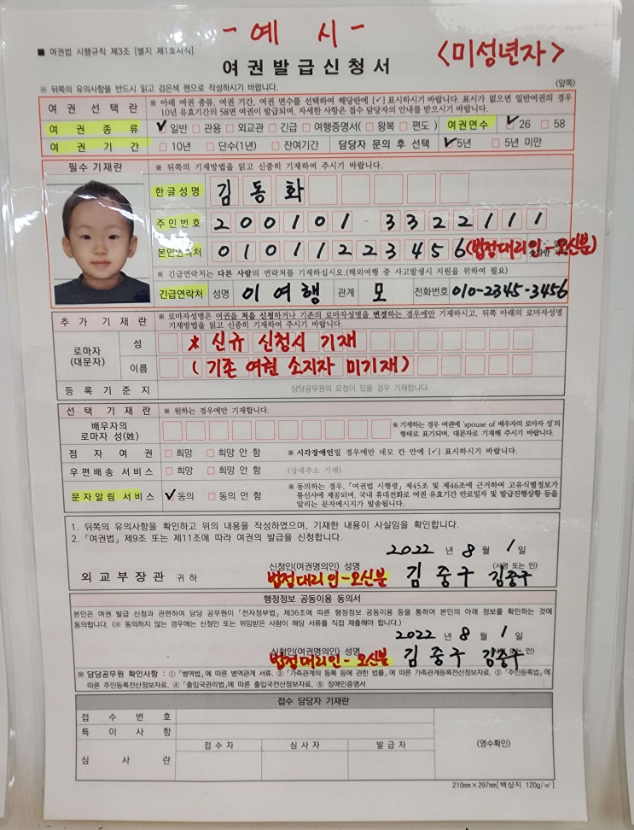 - 예 시 -
■ 여권법 시행규칙 제3조 [별지 제1호서식]
<미성년자>
여권발급신청서
※ 뒤쪽의 유의사항을 반드시 읽고 검은색 펜으로 작성하시기 바랍니다. (앞쪽)
여 권 선 택 란 ※ 아래 여권 종류, 여권 기간, 여권 면수를 선택하여 해당란에 [✓] 표시하시기 바랍니다. 표시가 없으면 일반여권의 경우
10년 유효기간의 58면 여권이 발급되며, 자세한 사항은 접수 담당자의 안내를 받으시기 바랍니다.
여 권 종 류 ☑ 일반 □ 관용 □ 외교관 □ 긴급 □ 여행증명서(□ 왕복 □ 편도) 여권면수 ☑ 26 □ 58
여 권 기 간 □ 10년 □ 단수(1년) □ 잔여기간 담당자 문의 후 선택 ☑ 5년 □ 5년 미만
필수 기재란 ※ 뒤쪽의 기재방법을 읽고 신중히 기재하여 주시기 바랍니다.
한글성명 김동화
주민번호 200101-3322111
본인연락처 01011223456 (법정대리인-오신분)
※ 긴급연락처는 다른 사람의 연락처를 기재하십시오.(해외여행 중 사고발생시 지원을 위하여 필요)
긴급연락처 성명 이여행 관계 모 전화번호 010-2345-3456
추 가 기 재 란 ※ 로마자성명은 여권을 처음 신청하거나 기존의 로마자성명을 변경하는 경우에만 기재하시고, 뒤쪽 아래의 로마자성명
기재방법을 읽고 신중히 기재하여 주시기 바랍니다.
로마자
(대문자)
성 * 신규 신청시 기재
이름 (기존 여권 소지자 미기재)
등 록 기 준 지 담당공무원의 요청이 있을 경우 기재합니다.
선 택 기 재 란 ※ 원하는 경우에만 기재합니다.
배우자의
로마자 성(姓)
※ 기재하는 경우 여권에 'spouse of 배우자의 로마자 성'의
형태로 표기되며, 대문자로 기재해 주시기 바랍니다.
점 자 여 권 □ 희망 □ 희망 안 함 ※ 시각장애인일 경우에만 네모 칸 안에 [✓] 표시합니다.
우편배송 서비스 □ 희망 □ 희망 안 함 (상세주소 기재)
문자알림 서비스 ☑ 동의 □ 동의 안 함
※ 동의하는 경우, 「여권법 시행령」 제45조 및 제46조에 근거하여 고유식별정보가
통신사에 제공되며, 국내 휴대전화로 여권 유효기간 만료일자 및 발급진행상황 등을
알리는 문자메시지가 발송됩니다.
1. 뒤쪽의 유의사항을 확인하고 위의 내용을 작성하였으며, 기재한 내용이 사실임을 확인합니다.
2. 「여권법」 제9조 또는 제11조에 따라 여권의 발급을 신청합니다.
2022 년 8 월 1 일
신청인(여권명의인) 성명 (서명 또는 인)
외교부장관 귀하 법정대리인-오신분 김중구 김중구
행정정보 공동이용 동의서
본인은 여권 발급 신청과 관련하여 담당 공무원이 「전자정부법」 제36조에 따른 행정정보 공동이용 등을 통하여 본인의 아래 정보를 확인하는 것에
동의합니다. (※ 동의하지 않는 경우에는 신청인 또는 위임받은 사람이 해당 서류를 직접 제출해야 합니다.)
2022 년 8 월 1 일
신청인(여권명의인) 성명
법정대리인-오신분 김중구 김중구
※ 담당공무원 확인사항 : ① 「병역법」에 따른 병역관계 서류. ② 「가족관계의 등록 등에 관한 법률」에 따른 가족관계등록전산정보자료. ③ 「주민등록법」에
따른 주민등록전산정보자료. ④ 「출입국관리법」에 따른 출입국전산정보자료. ⑤ 장애인증명서
접수 담당자 기재란
접 수 번 호
특 이 사 항
심 사 란 접 수 자 심 사 자 발 급 자 (영수확인)
210㎜×297㎜[백상지 120g/㎡]